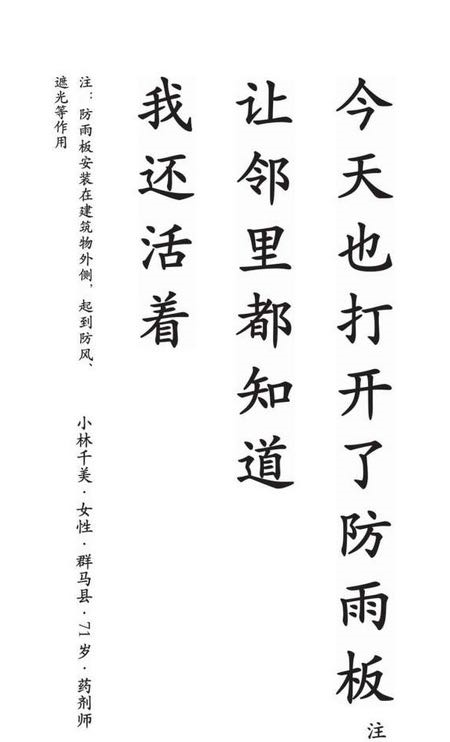 今天也打开了防雨板注
让邻里都知道
我还活着
小林千美·女性·群马县·71岁·药剂师
注：防雨板安装在建筑物外侧，起到防风、
遮光等作用